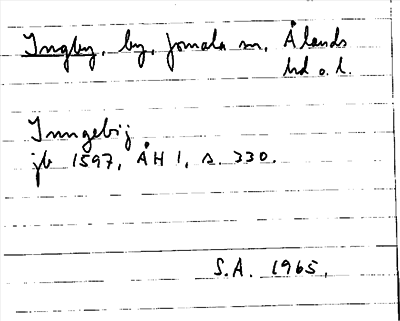 Ingby, by, Jomala sn, Ålands
hd o. l.
Inngebij
jb 1597, ÅH 1, s. 330.
S.A. 1965.